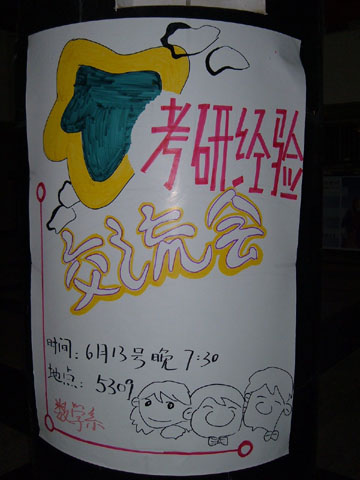 考研经验
交流会
时间：6月13号晚 7:30
地点：5309
数学系